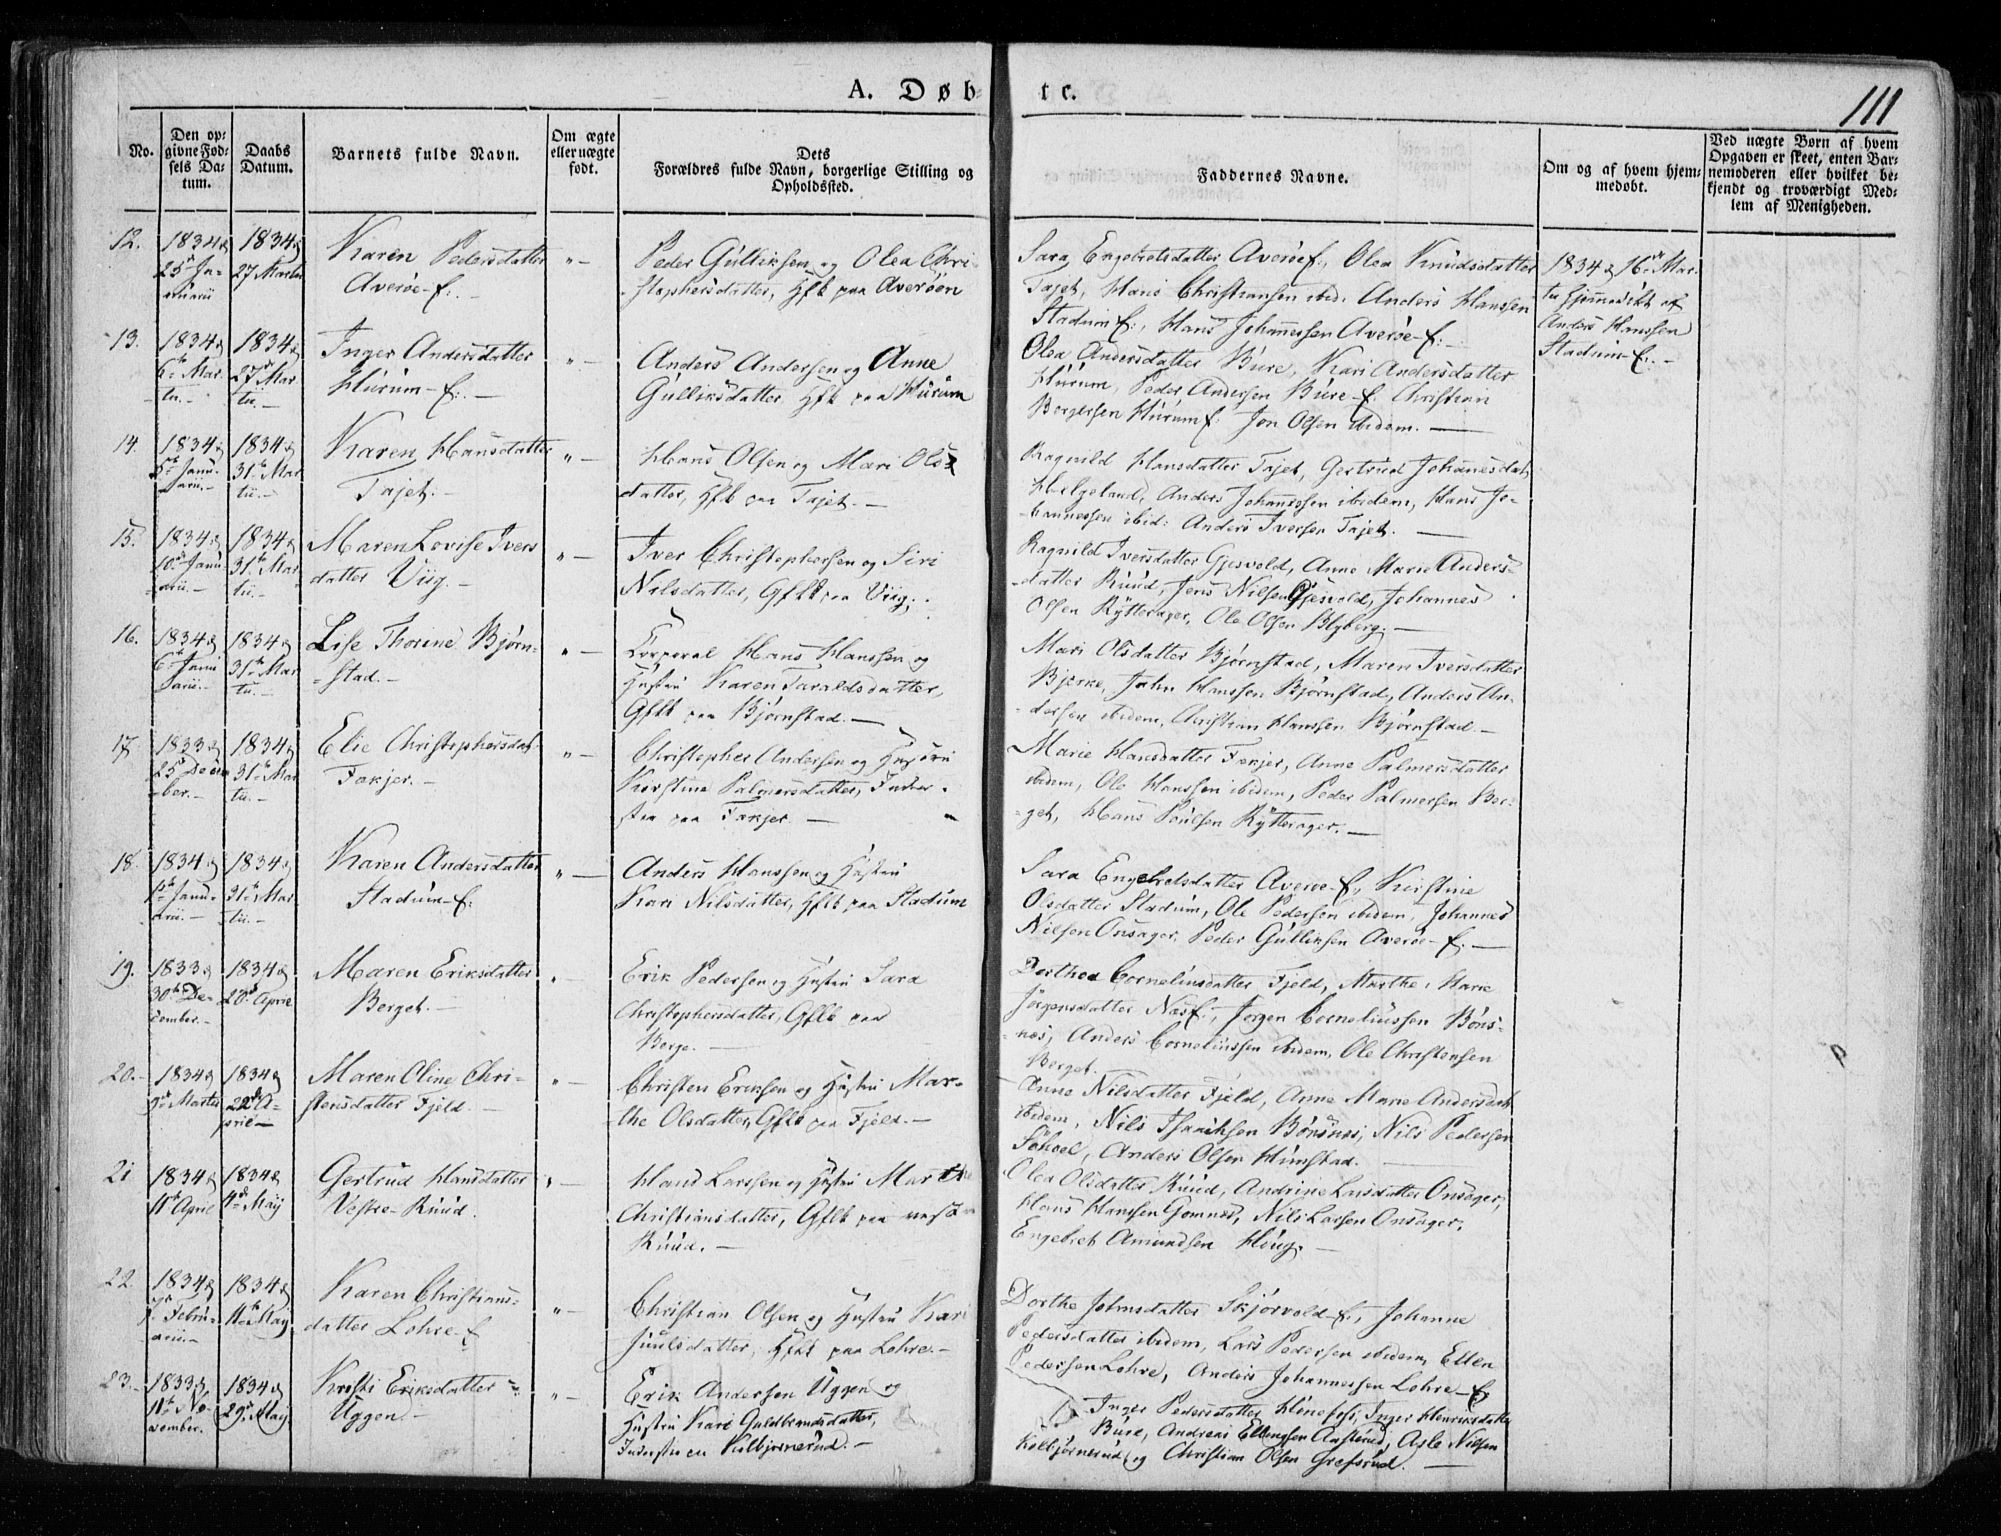 A. Døb-
te.
111
No.
Den op-
givne Fød-
sels Da-
tum.
Daabs
Datum.
Barnets fulde Navn.
Om ægte
eller uægte
født.
Dets
Forældres fulde Navn, borgerlige Stilling og
Opholdssted.
Faddernes Navne.
Om og af hvem hjem-
medøbt.
Ved uægte Børn af hvem
Opgaven er skeet, enten Bar-
nemoderen eller hvilket be-
kjendt og troværdigt Med-
lem af Menigheden.
12.
1834
25 Ja-
nuarii
1834
27 Martii
Karen Pedersdatter
Averøe-E:.-
" -
Peder Gulliksen og Olea Chri-
-stophersdatter, Hflk paa Averøen
Sara Engebretsdatter Averøe E:, Olea Knudsdatter
Tajet, Hans Christiansen ibid: Anders Hanssen
Stadum E:, Hans Johannessen Averøe-E:-
1834 16 Mar-
tii hjemmedøbt af
Anders Hanssen
Stadum-E:.-
13.
1834
6te Mar-
tii.
1834
27 Mar
tii.
Inger Andersdatter
Hurum-E:.-
" -
Anders Andersen og Anne
Gulliksdatter Hflk paa Hurum
Olea Andersdatter Bure, Kari Andersdatter
Hurum, Peder Andersen Bure-E Christian
Borgersen Hurum E: Jon Olsen ibidem. -
14.
1834
5te Janu-
arii.-
1834
31te Mar
tii.-
Karen Hansdatter
Tajet.-
" -
Hans Olsen og Mari Ols-
datter, Hflk paa Tajet.-
Ragnild Hansdatter Tajet, Gertrud Johannesdat.
Helgeland, Anders Johannssen ibidem, Hans Jo-
-hannessen ibid: Anders Iversen Tajet. -
15.
1834
10de Janu
arii.-
1834
31te Mar-
tii.-
Maren Lovise Ivers
datter Viig.-
" -
Iver Christophersen og Siri
Nilsdatter, Gflk paa Viig.
Ragnild Iversdatter Gjesvold, Anne Marie Anders-
-datter Ruud, Jens Nilsen Gjesvold, Johannes
Olsen Rytterager, Ole Olsen Blyberg.-
16.
1834
6te Janu
arii.-
1834
31te Mar
tii.-
Lise Thorine Bjørn-
-stad.-
" -
Corporal Hans Hanssen og
Hustru Karen Taraldsdatter,
Gflk paa Bjørnstad.-
Mari Olsdatter Bjørnstad, Maren Iversdatter
Bjerke, John Hanssen Bjørnstad, Anders An-
-dersen ibidem, Christian Hanssen Bjørnstad-
17.
1833
25 Decem
-ber.-
1834
31te Mar
tii.-
Elie Christophersdat.
Fækjer.-
" -
Christopher Andersen og Hustru
Kirstine Palmersdatter, Inder-
ster paa Fækjer.-
Marie Hansdatter Fækjer, Anne Palmersdatter
ibidem, Ole Hanssen ibidem, Peder Palmersen Ber-
-get, Hans Poulsen Rytterager.-
18.
1834
Janu-
arii.-
1834
31te Mar
tii.-
Karen Andersdatter
Stadum-E:
" -
Anders Hanssen og Hustru
Kari Nilsdatter, Hflk paa Stadum
Sara Engebretsdatter Averøe-E:, Kirstine
Olsdatter Stadum, Ole Pedersen ibidem, Johannes
Nilsen Onsager, Peder Gulliksen Averøe-E:.-
19.
1833
30te De-
cember.-
1834
20de Aprie
Maren Eriksdatter
Berget.-
" -
Erik Pedersen og Hustru Sara
Christophersdatter, Gflk paa
Berge.-
Dorthea Corneliusdatter Fjeld, Marthe Marie
Jørgensdatter Næs E:, Jørgen Corneliussen Bøns-
-næs, Anders Corneliussen ibidem, Ole Christensen
Berget.
20.
1834
9de Martii
1834
22de A-
prie-
Maren Oline Chri-
stensdatter Fjeld.
" -
Christen Eriksen og Hustru Mar-
the Olsdatter, Gflk paa Fjeld.-
Anne Nilsdatter Fjeld, Anne Marie Andersdat.
ibidem, Nils Isachsen Bønsnes, Nils Pedersen
Sohoel, Anders Olsen Himstad.
21
1834
11te Aprie
1834
4de Maij
Gertrud Hansdatter
Vestre-Ruud.
" -
Hans Larssen og Hustru Marthe
Christiansdatter, Gflk paa vestre
Ruud.-
Olea Olsdatter Ruud, Andrine Larsdatter Onsager,
Hans Hanssen Gomnes, Nils Larsen Onsager,
Engebret Amundsen Houg.-
22.
1834
7de Febru-
arii.-
1834
11te Maij
Karen Christians-
datter Lohre-E
" -
Christian Olsen og Hustru Kari
Juulsdatter, Hflk paa Lohre.-
Dorthe Johnsdatter Skjørvold-E:, Johanne
Pedersdatter ibidem, Lars Pedersen ibidem, Ellen
Pedersen Lohre, Anders Johannessen Lohre-E:
23.
1833
11te No-
vember.
1834
29de Maij
Kristi Eriksdatter
Uggen-
" -
Erik Andersen Uggen og
Hustru Kari Guldbrandsdatter,
Inderster Kulbjørnerud.-
Inger Pedersdatter Hønefoss, Inger Henriksdatter
Bure, Andreas Ellingsen Aasterud, Asle Nilsen
Kolbjørnerud og Christian Olsen Grefsrud.-